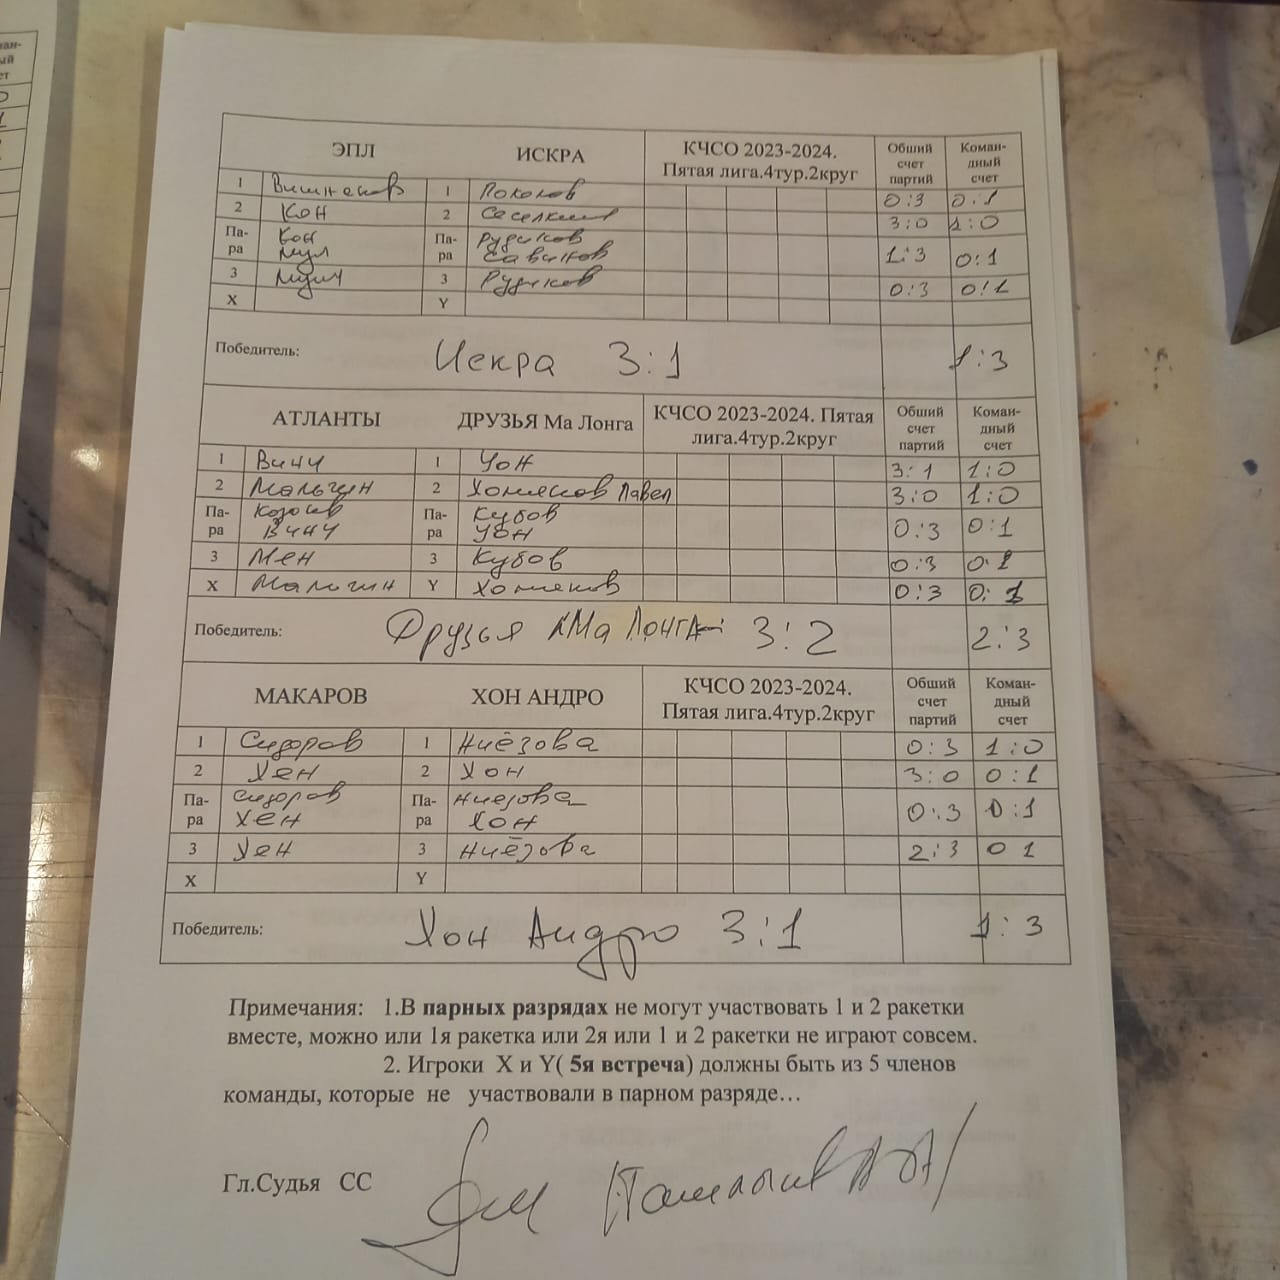 ЭПЛ ИСКРА КЧСО 2023-2024. Пятая лига.4тур.2круг Общий счет партий Коман-дный счет
1 Вишняков 1 Поколов 0:3 0:1
2 Кон 2 3:0 1:0
Па-ра Кон Па-ра Рудиков 1:3 0:1
Мул Савинов
3 3 Рудиков 0:3 0:1
X Y
Победитель: Искра 3:1 1:3
АТЛАНТЫ ДРУЗЬЯ Ма Лонга КЧСО 2023-2024. Пятая лига.4тур.2круг Общий счет партий Коман-дный счет
1 Вичи 1 Уон 3:1 1:0
2 Мальгин 2 Хомяков Павел 3:0 1:0
Па-ра Па-ра Кубов 0:3 0:1
Вичи Уон
3 Мен 3 Кубов 0:3 0:1
X Мальгин Y Хомяков 0:3 0:1
Победитель: Друзья Ма Лонга 3:2 2:3
МАКАРОВ ХОН АНДРО КЧСО 2023-2024. Пятая лига.4тур.2круг Общий счет партий Коман-дный счет
1 Сидоров 1 Ниёзова 0:3 1:0
2 Хен 2 Хон 3:0 0:1
Па-ра Сидоров Па-ра Ниезова 0:3 0:1
Хен Хон
3 Хен 3 Ниёзова 2:3 0 1
X Y
Победитель: Хон Андро 3:1 1:3
Примечания: 1.В парных разрядах не могут участвовать 1 и 2 ракетки
вместе, можно или 1я ракетка или 2я или 1 и 2 ракетки не играют совсем.
2. Игроки X и Y( 5я встреча) должны быть из 5 членов
команды, которые не участвовали в парном разряде…
Гл.Судья СС